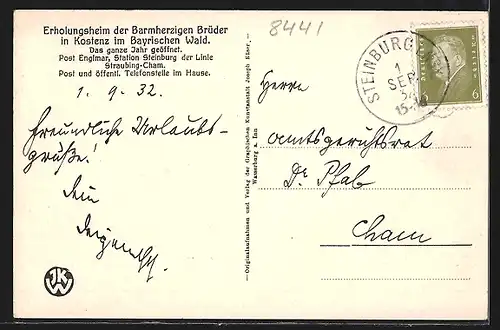 Erholungsheim der Barmherzigen Brüder
in Kostenz im Bayrischen Wald.
Das ganze Jahr geöffnet.
Post Englmar, Station Steinburg der Linie
Straubing-Cham.
Post und öffentl. Telefonstelle im Hause.
1. 9. 32.
Freundliche Urlaubs-
grüße!
Dein
8441
STEINBURG
1
SEP
32
Deutsches Reich
6
Herrn
Amtsgerichtsrat
Dr. Pfab
Cham
Originalaufnahmen und Verlag der Graphischen Kunstanstalt Joseph Elner,
Wasserburg a. Inn